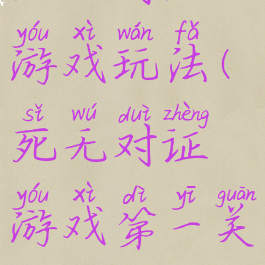 yóu xì wán fǎ
游戏玩法(
sǐ wú duì zhèng
死无对证
yóu xì dì yī guān
游戏第一关